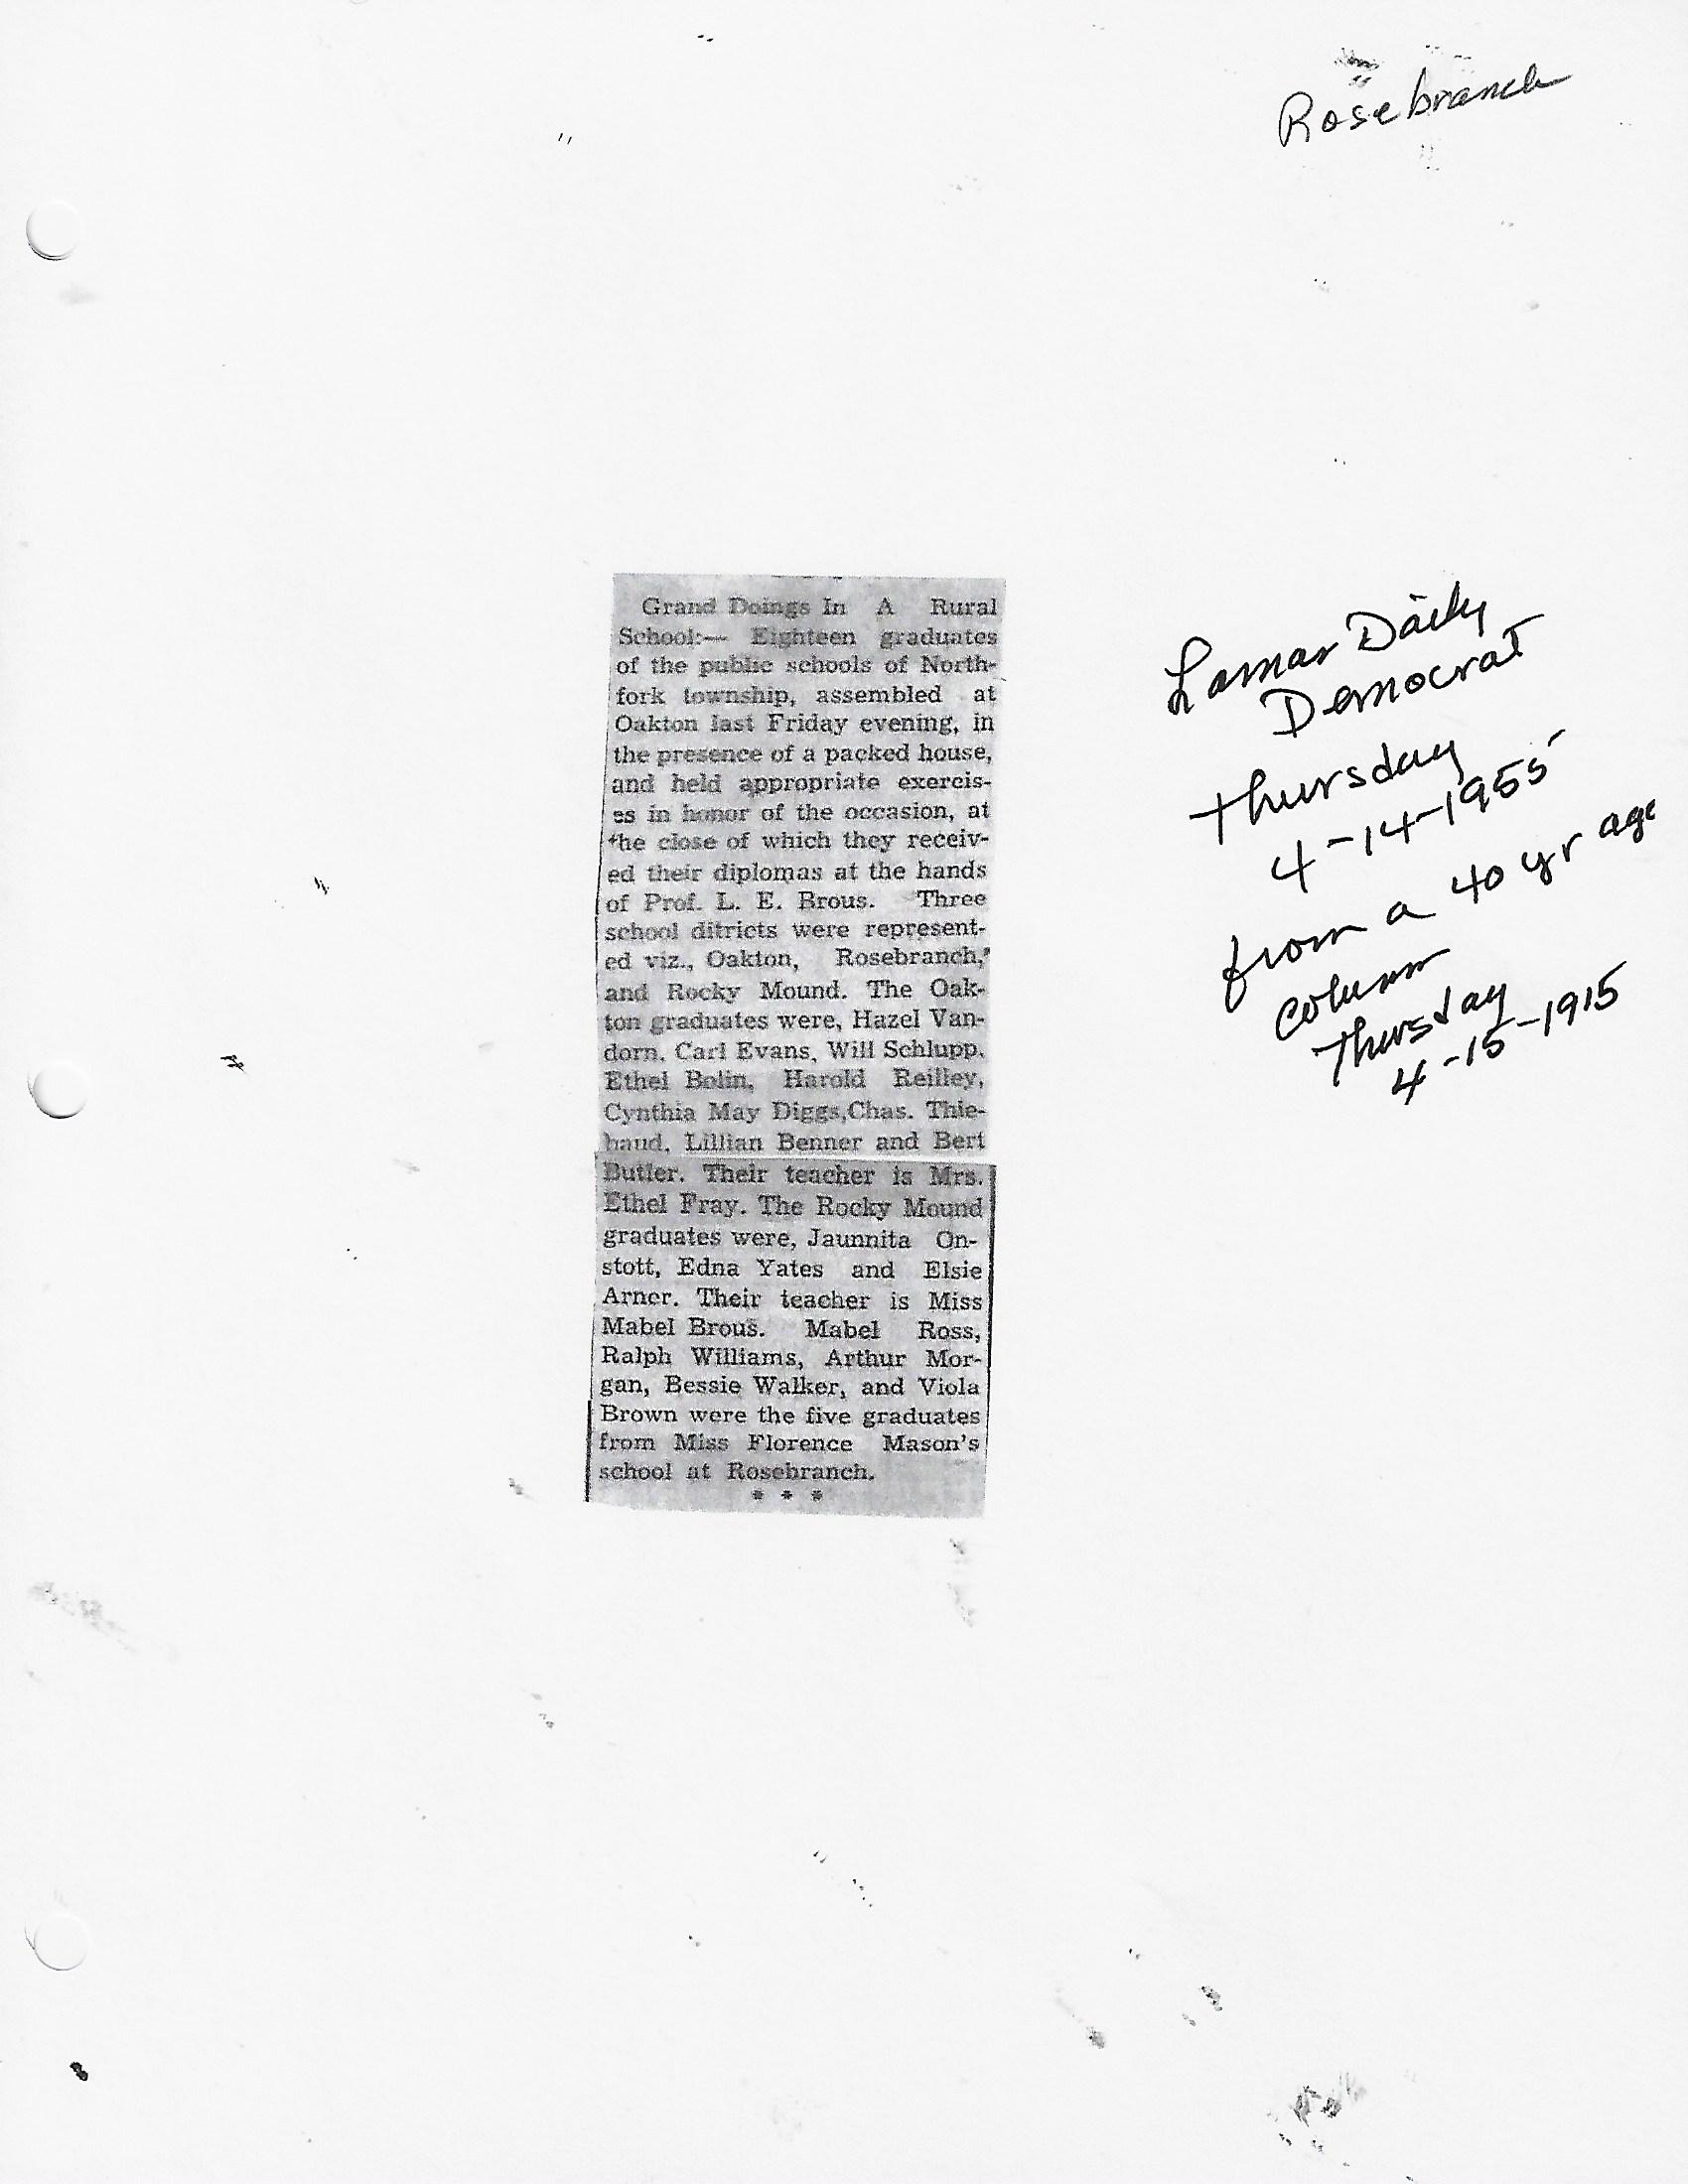 Rosebranch
Grand Doings In A Rural
School:— Eighteen graduates
of the public schools of North-
fork township, assembled at
Oakton last Friday evening, in
the presence of a packed house,
and held appropriate exercis-
es in honor of the occasion, at
the close of which they receiv-
ed their diplomas at the hands
of Prof. L. E. Brous. Three
school ditricts were represent-
ed viz., Oakton, Rosebranch,
and Rocky Mound. The Oak-
ton graduates were, Hazel Van-
dorn, Carl Evans, Will Schlupp,
Ethel Bolin, Harold Reilley,
Cynthia May Diggs,Chas. Thie-
baud, Lillian Benner and Bert
Butler. Their teacher is Mrs.
Ethel Fray. The Rocky Mound
graduates were, Jaunnita On-
stott, Edna Yates and Elsie
Arner. Their teacher is Miss
Mabel Brous. Mabel Ross,
Ralph Williams, Arthur Mor-
gan, Bessie Walker, and Viola
Brown were the five graduates
from Miss Florence Mason's
school at Rosebranch.
* * *
Lamar Daily
Democrat
Thursday
4-14-1955
from a 40 yr age
column
Thursday
4-15-1915